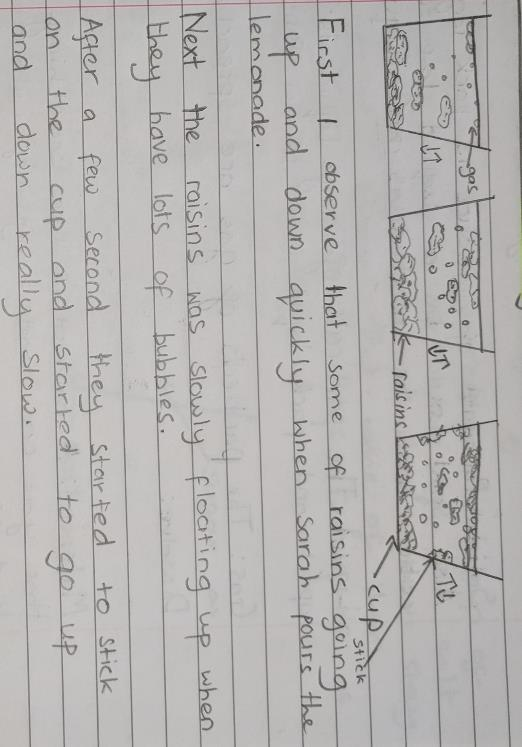 gas
raisins
cup
stick
First I observe that some of raisins going
up and down quickly when Sarah pours the
lemonade.
Next the raisins was slowly floating up when
they have lots of bubbles.
After a few second they started to stick
on the cup and started to go up
and down really slow.